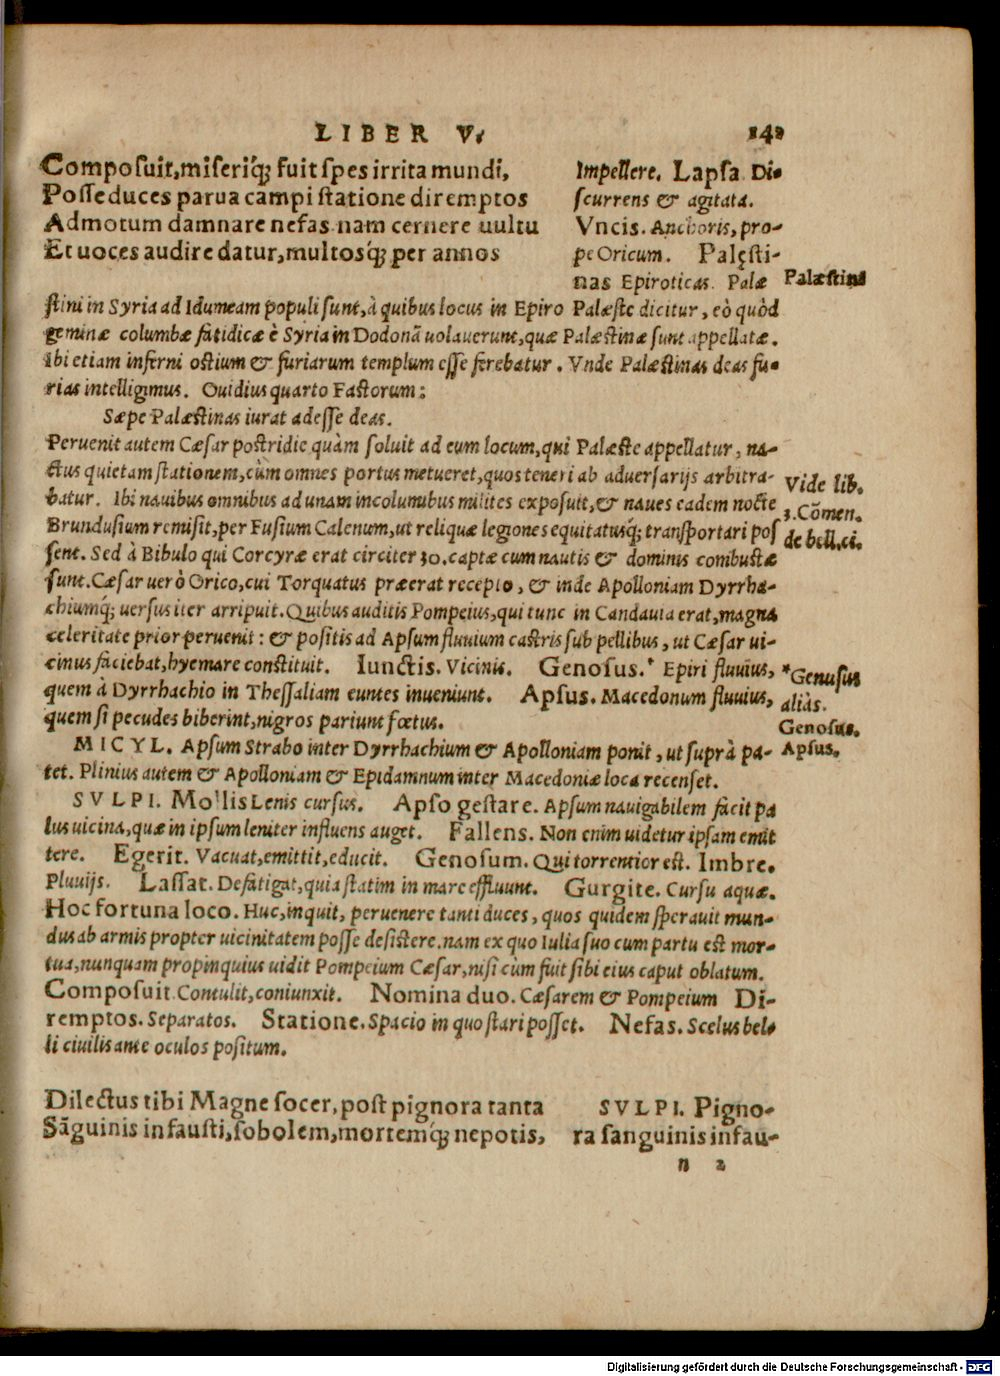 LIBER V. 142
Composuit, miseriq́; fuit spes irrita mundi,
Posse duces parua campi statione diremptos
Admotum damnare nefas. nam cernere uultu
Et uoces audire datur, multosq́; per annos
Impellere. Lapsa. Di-
scurrens & agitata.
Vncis. Anchoris, pro-
pe Oricum. Palęsti-
nas Epiroticas. Palæ
Palæstini
stini in Syria ad Idumeam populi sunt, à quibus locus in Epiro Palæste dicitur, eò quòd
geminæ columbæ fatidicæ è Syria in Dodonã uolauerunt, quæ Palæstinæ sunt appellatæ.
Ibi etiam inferni ostium & furiarum templum esse ferebatur. Vnde Palæstinas deas fu-
rias intelligimus. Ouidius quarto Fastorum:
Sæpe Palæstinas iurat adesse deas.
Peruenit autem Cæsar postridie quàm soluit ad eum locum, qui Palæste appellatur, na-
ctus quietam stationem, cùm omnes portus metueret, quos teneri ab aduersarijs arbitra-
batur. Ibi nauibus omnibus ad unam incolumibus milites exposuit, & naues eadem nocte
Brundusium remisit, per Fusium Calenum, ut reliquæ legiones equitatusq́; transportari pos
sent. Sed à Bibulo qui Corcyræ erat circiter 30. captæ cum nautis & dominis combustæ
sunt. Cæsar uerò Orico, cui Torquatus præerat recepto, & inde Apolloniam Dyrrha-
chiumq́; uersus iter arripuit. Quibus auditis Pompeius, qui tunc in Candauia erat, magna
celeritate prior peruenit: & positis ad Apsum fluuium castris sub pellibus, ut Cæsar ui-
cinus faciebat, hyemare constituit. Iunctis. Vicinis. Genosus.* Epiri fluuius,
quem à Dyrrhachio in Thessaliam euntes inueniunt. Apsus. Macedonum fluuius,
quem si pecudes biberint, nigros pariunt fœtus.
Vide lib.
3. Cõmen.
de bell. ci.
*Genusus
aliâs.
Genosus.
Apsus.
MICYL. Apsum Strabo inter Dyrrhachium & Apolloniam ponit, ut suprà pa-
tet. Plinius autem & Apolloniam & Epidamnum inter Macedoniæ loca recenset.
SVLPI. Mollis Lenis cursus. Apso gestare. Apsum nauigabilem facit pa
lus uicina, quæ in ipsum leniter influens auget. Fallens. Non enim uidetur ipsam emit
tere. Egerit. Vacuat, emittit, educit. Genosum. Qui torrentior est. Imbre.
Pluuijs. Lassat. Defatigat, quia statim in mare effluunt. Gurgite. Cursu aquæ.
Hoc fortuna loco. Huc, inquit, peruenere tanti duces, quos quidem sperauit mun-
dus ab armis propter uicinitatem posse desistere. nam ex quo Iulia suo cum partu est mor-
tua, nunquam propinquius uidit Pompeium Cæsar, nisi cùm fuit sibi eius caput oblatum.
Composuit. Contulit, coniunxit. Nomina duo. Cæsarem & Pompeium Di-
remptos. Separatos. Statione. Spacio in quo stari posset. Nefas. Scelus bel-
li ciuilis ante oculos positum.
Dilectus tibi Magne socer, post pignora tanta
Sãguinis infausti, sobolem, mortemq́; nepotis,
SVLPI. Pigno-
ra sanguinis infau-
n 2
Digitalisierung gefördert durch die Deutsche Forschungsgemeinschaft - DFG